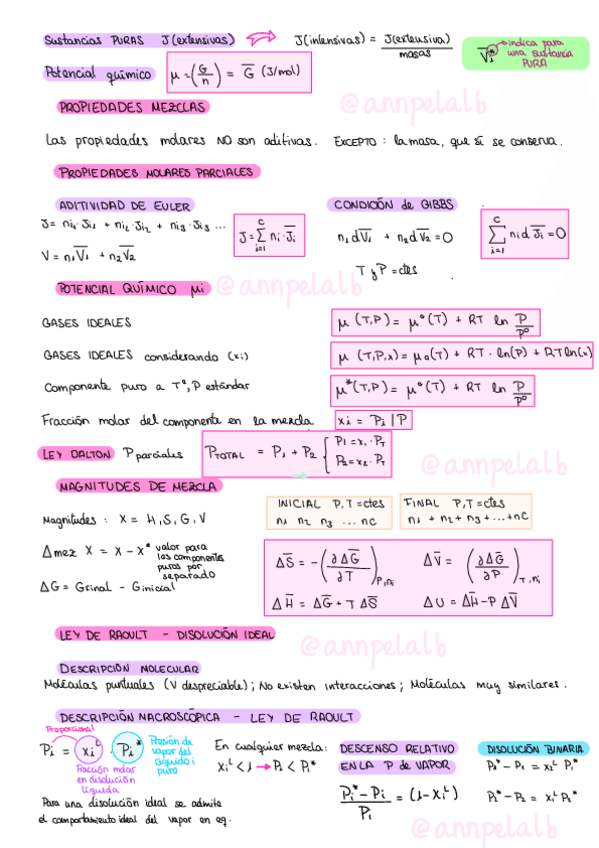 Sustancias PURAS J(extensivas) J(intensivas) = J(extensiva) / masas
V̄i* indica para una sustancia PURA
Potencial químico μ = (G/n) = Ḡ (J/mol)
@annpelalb
PROPIEDADES MEZCLAS
Las propiedades molares NO son aditivas. EXCEPTO : la masa, que sí se conserva.
PROPIEDADES MOLARES PARCIALES
ADITIVIDAD DE EULER
J = ni₁·Ji₁ + ni₂ Ji₂ + ni₃·Ji₃ ...
J = Σ ni·J̄i
c
i=1
V = n₁V̄₁ + n₂V̄₂
CONDICIÓN de GIBBS
n₁dV̄₁ + n₂dV̄₂ = 0
c
Σ ni dJ̄i = 0
i=1
T y P = ctes
POTENCIAL QUÍMICO μi
@annpelalb
GASES IDEALES μ (T,P) = μ°(T) + RT ln P/P°
GASES IDEALES considerando (xi) μ (T,P,x) = μ₀(T) + RT · ln(P) + RT ln(x)
Componente puro a Tª, P estándar μ*(T,P) = μ°(T) + RT ln P/P°
Fracción molar del componente en la mezcla xi = Pi | P
LEY DALTON P parciales PTOTAL = P₁ + P₂ { P₁ = x₁·PT
P₂ = x₂·PT
@annpelalb
MAGNITUDES DE MEZCLA
Magnitudes : X = H, S, G, V
INICIAL P,T = ctes
n₁ n₂ n₃ ... nC
FINAL P,T = ctes
n₁ + n₂ + n₃ + ... + nC
Δmez X = X - X* valor para los componentes puros por separado
ΔG = Gfinal - Ginicial
ΔS̄ = -(∂ΔḠ/∂T)P,ni ΔV̄ = (∂ΔḠ/∂P)T,ni
ΔH̄ = ΔḠ + T ΔS̄ ΔU = ΔH̄ - P ΔV̄
LEY DE RAOULT - DISOLUCIÓN IDEAL
@annpelalb
DESCRIPCIÓN MOLECULAR
Moléculas puntuales (V despreciable) ; No existen interacciones ; Moléculas muy similares.
DESCRIPCIÓN MACROSCÓPICA - LEY DE RAOULT
Proporcional
Pi = xiᴸ Pi*
Presión de vapor del líquido i puro
Fracción molar en disolución líquida
Para una disolución ideal se admite
el comportamiento ideal del vapor en eq.
En cualquier mezcla:
xiᴸ < 1 → Pi < Pi*
DESCENSO RELATIVO
EN LA P de VAPOR
Pi* - Pi / Pi = (1 - xiᴸ)
DISOLUCIÓN BINARIA
P₂* - P₂ = x₁ᴸ P₂*
@annpelalb